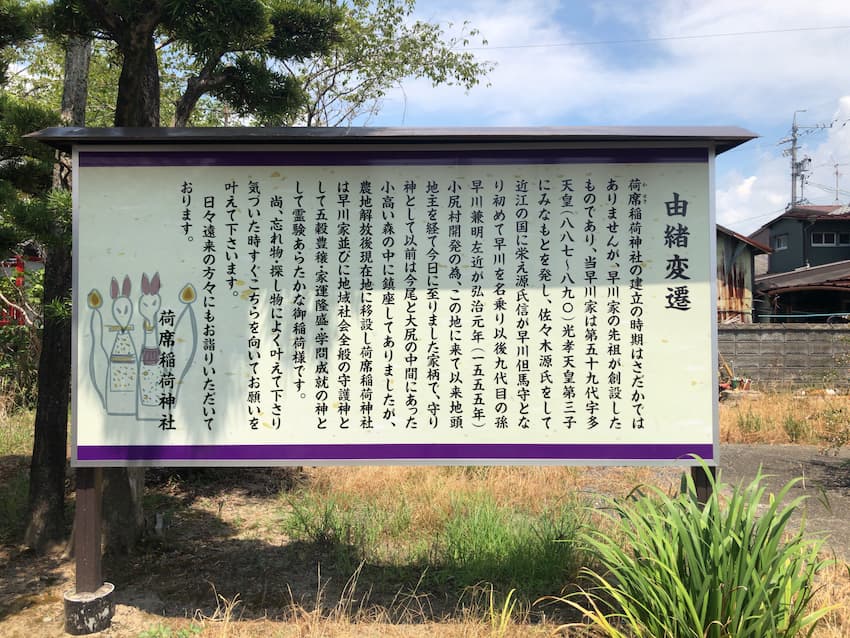 由緒変遷
荷席稲荷神社の建立の時期はさだかでは
かせき
ありませんが、早川家の先祖が創設した
ものであり、当早川家は第五十九代宇多
天皇(八八七〜八九〇)光孝天皇第三子
にみなもとを発し、佐々木源氏をして
近江の国に栄え源氏信が早川但馬守とな
り初めて早川を名乗り以後九代目の孫
早川兼明左近が弘治元年(一五五五年)
小尻村開発の為、この地に来て以来地頭
地主を経て今日に至りました家柄で、守り
神として以前は今尾と大尻の中間にあった
小高い森の中に鎮座してありましたが、
農地解放後現在地に移設し荷席稲荷神社
は早川家並びに地域社会全般の守護神と
して五穀豊穣・家運隆盛・学問成就の神と
して霊験あらたかな御稲荷様です。
尚、忘れ物・探し物によく叶えて下さり
気づいた時すぐこちらを向いてお願いを
叶えて下さいます。
日々遠来の方々にもお詣りいただいて
おります。
荷席稲荷神社